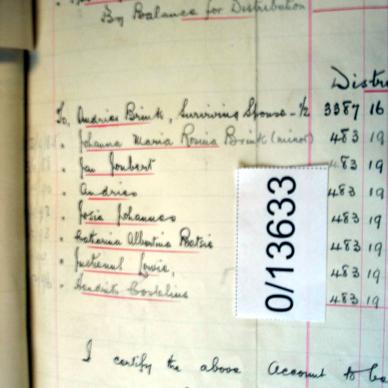 By Balance for Distribution
Distri
To, Andries Brink, Surviving Spouse - 1/2 3387 16
" Johanna Maria Rosina Brink (minor) 483 19
" Jan Joubert 483 19
" Andries 483 19
" Josia Johannes 483 19
" Catharina Albertina Betsie 483 19
" Louis, 483 19
" Hendrik Cornelius 483 19
0/13633
I certify the above Account to be